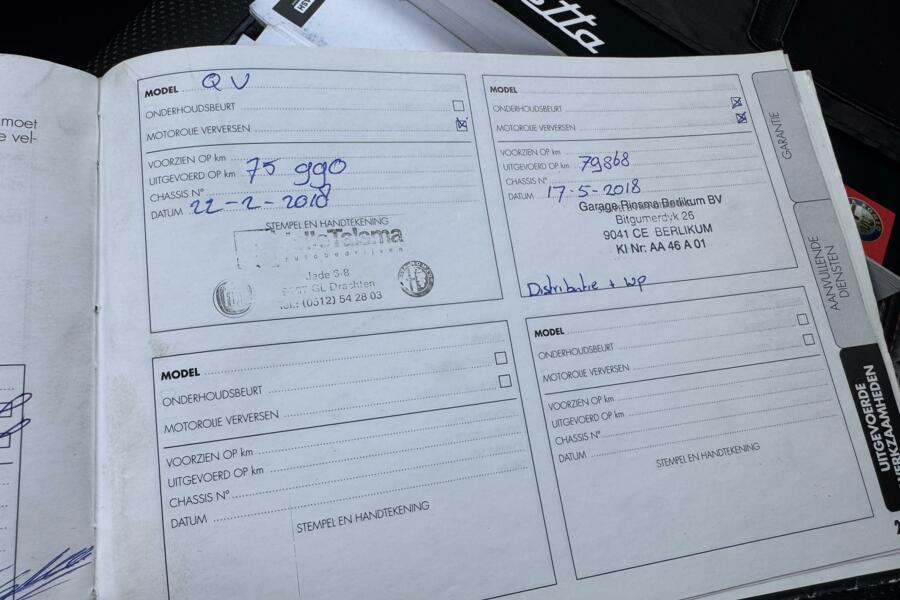 moet
e vel-
MODEL QV
ONDERHOUDSBEURT
MOTOROLIE VERVERSEN
VOORZIEN OP km
UITGEVOERD OP km 75 990
CHASSIS N°
DATUM 22-2-2018
STEMPEL EN HANDTEKENING
Talsma
autobedrijven
Jade 6-8
GL Drachten
Tel.: (0512) 54 28 03
MODEL
ONDERHOUDSBEURT
MOTOROLIE VERVERSEN
VOORZIEN OP km
UITGEVOERD OP km 79868
CHASSIS N°
DATUM 17-5-2018
Garage Riosma Berlikum BV
Bitgumerdyk 26
9041 CE BERLIKUM
KI Nr: AA 46 A 01
Distributie + wp
MODEL
ONDERHOUDSBEURT
MOTOROLIE VERVERSEN
VOORZIEN OP km
UITGEVOERD OP km
CHASSIS N°
DATUM
STEMPEL EN HANDTEKENING
MODEL
ONDERHOUDSBEURT
MOTOROLIE VERVERSEN
VOORZIEN OP km
UITGEVOERD OP km
CHASSIS N°
DATUM
STEMPEL EN HANDTEKENING
GARANTIE
AANVULLENDE
DIENSTEN
UITGEVOERDE
WERKZAAMHEDEN